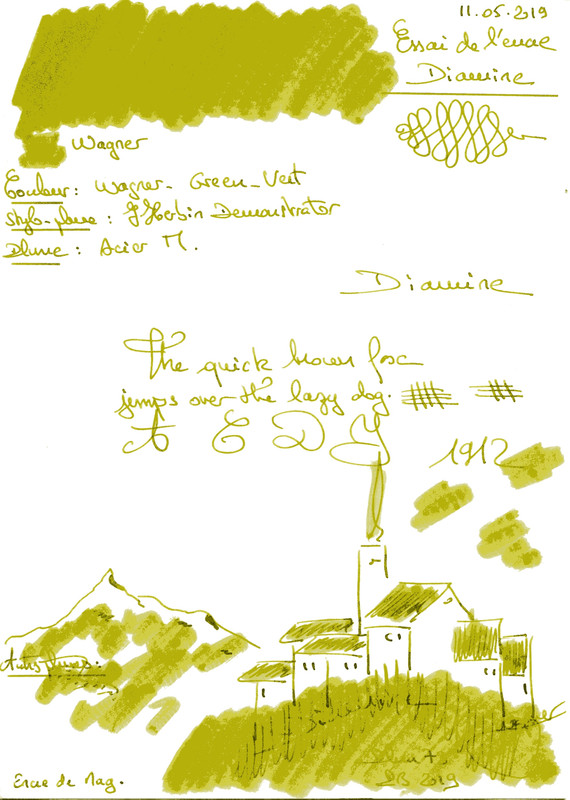 11.05.2019
Essai de l'encre
Diamine
Wagner
Couleur: Wagner - Green - Vert
Stylo-plume : J Herbin Demonstrator
Plume : Acier M.
Diamine
The quick brown fox
jumps over the lazy dog.
A E D Y
1912
Autres plumes:
2019
Encre de Mag.